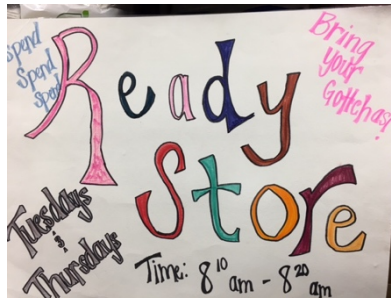 Spend
Spend
Spend
Ready
Store
Bring
Your
Gottchas!
Tuesdays
&
Thursdays
Time: 8¹⁰ am - 8²⁰ am